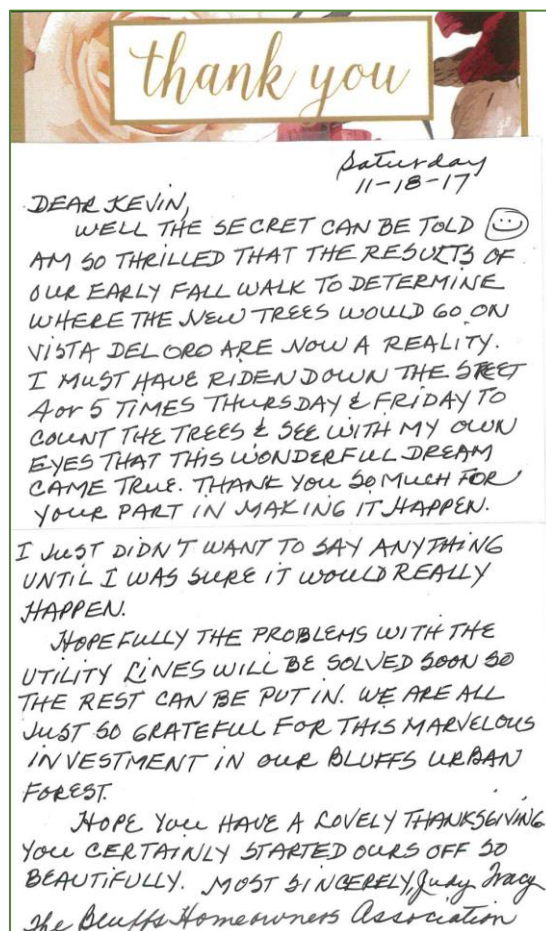 thank you
Saturday
11-18-17
DEAR KEVIN,
WELL THE SECRET CAN BE TOLD
AM SO THRILLED THAT THE RESULTS OF
OUR EARLY FALL WALK TO DETERMINE
WHERE THE NEW TREES WOULD GO ON
VISTA DEL ORO ARE NOW A REALITY.
I MUST HAVE RIDEN DOWN THE STREET
4 or 5 TIMES THURSDAY & FRIDAY TO
COUNT THE TREES & SEE WITH MY OWN
EYES THAT THIS WONDERFUL DREAM
CAME TRUE. THANK YOU SO MUCH FOR
YOUR PART IN MAKING IT HAPPEN.
I JUST DIDN'T WANT TO SAY ANYTHING
UNTIL I WAS SURE IT WOULD REALLY
HAPPEN.
HOPEFULLY THE PROBLEMS WITH THE
UTILITY LINES WILL BE SOLVED SOON SO
THE REST CAN BE PUT IN. WE ARE ALL
JUST SO GRATEFUL FOR THIS MARVELOUS
INVESTMENT IN OUR BLUFFS URBAN
FOREST.
HOPE YOU HAVE A LOVELY THANKSGIVING
YOU CERTAINLY STARTED OURS OFF SO
BEAUTIFULLY. MOST SINCERELY, Judy Tracy
The Bluffs Homeowners Association